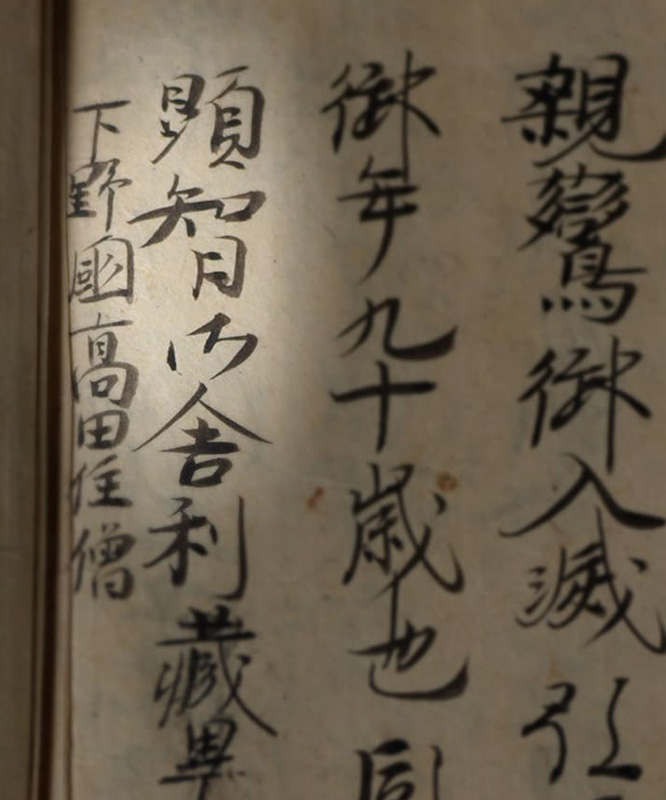 親鸞御入滅
御年九十歳也同
顕智御舎利蔵畢
下野國高田住僧